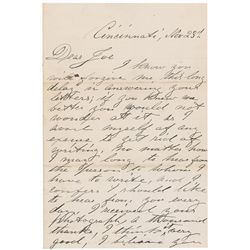 Cincinnati, Nov 23rd
Dear Joe
I know you
will forgive me this long
delay in answering your
letters; if you knew me
better you would not
wonder at it as I
avail myself of any
excuse to get rid of
writing, No matter how
much I may long to hear from
the person to whom I
have to write, and I
I should like
to hear from you every
day. I received your
photograph a thousand
thanks, I think is very
good, I believe